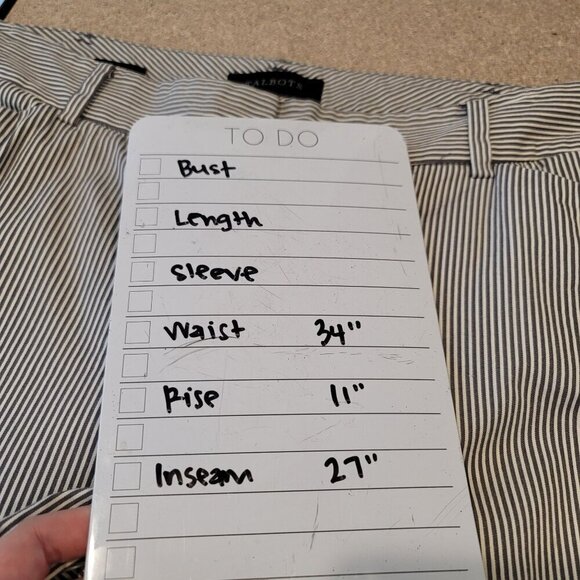 TALBOTS
TO DO
Bust
Length
Sleeve
Waist 34"
Rise 11"
Inseam 27"